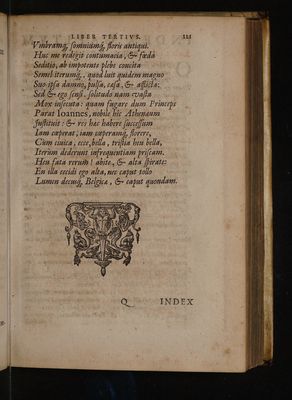 LIBER TERTIVS. 121
Vmbramq́; somniumq́; florie antiqui.
Huc me redegit contumacia, & fœda
Seditio, ab impotente plebe concita
Semel iterumq́;, quod luit quidem magno
Suo ipsa damno, pulsa, cæsa, & afflicta:
Sed & ego sensi. solitudo nam vasta
Mox insecuta: quam fugare dum Princeps
Parat Ioannes, nobile hic Athenæum
Instituit: & res hæc habere successum
Iam cœperat; iam cœperamq́; florere,
Cùm ciuica, ecce, bella, tristia heu bella,
Iterùm dederunt infrequentiam priscam.
Heu fata rerum! abite, & alta spirate:
En illa cecidi ego alta, nec caput tollo
Lumen decusq́; Belgicæ, & caput quondam.
Q INDEX